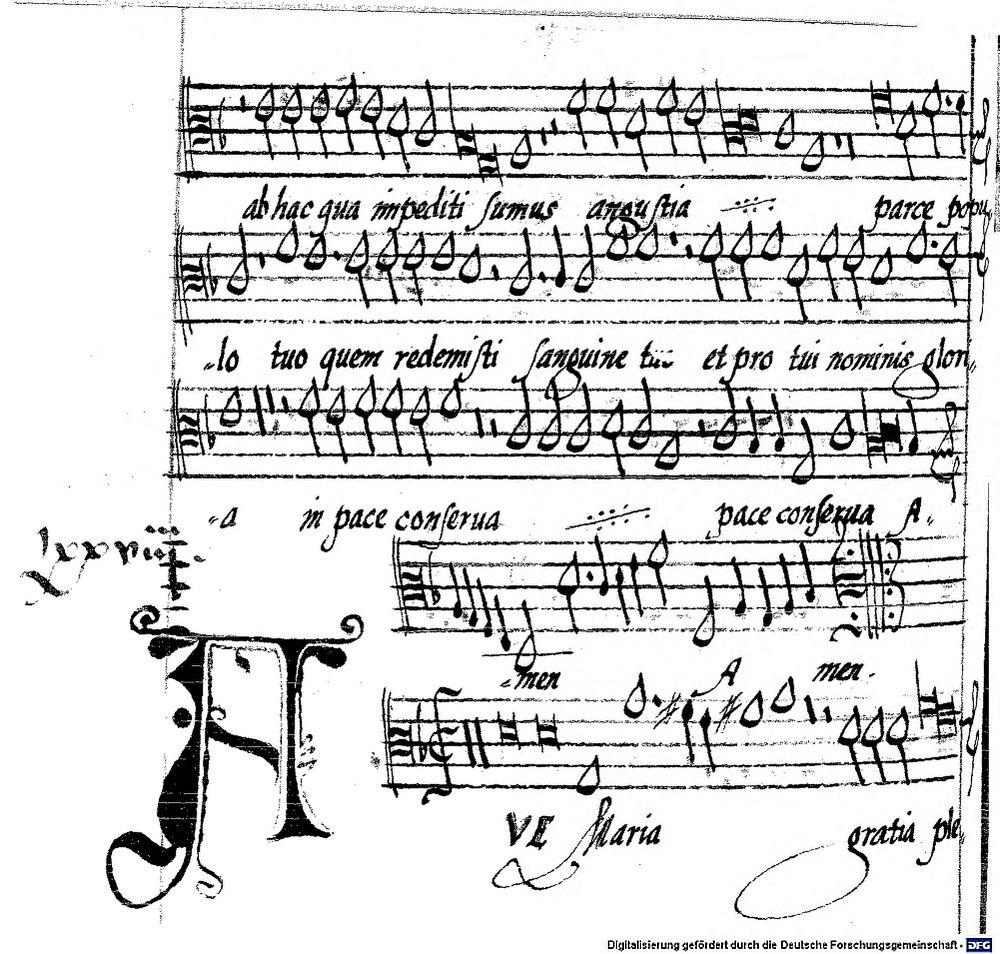 ab hac qua impediti sumus angustia parce popu,
-lo tuo quem redemisti sanguine tuo et pro tui nominis glori,
-a in pace conserua pace conserua A,
lxxviii.
-men A men.
AVE Maria gratia ple,
Digitalisierung gefördert durch die Deutsche Forschungsgemeinschaft - DFG